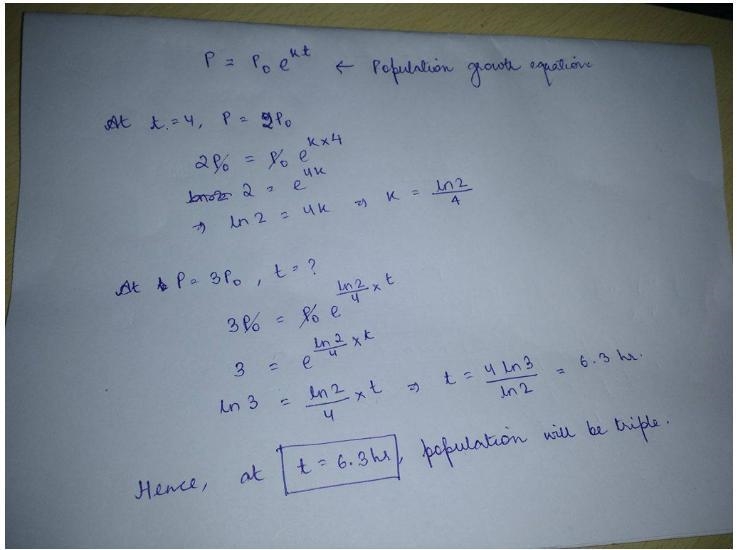 P = P₀ e^kt ← Population growth equation
At t = 4, P = 2P₀
2P₀ = P₀ e^k×4
2 = e^4k
⇒ ln 2 = 4k ⇒ k = ln2/4
At P = 3P₀, t = ?
3P₀ = P₀ e^(ln2/4 × t)
3 = e^(ln2/4 × t)
ln 3 = ln2/4 × t ⇒ t = 4 ln3/ln2 = 6.3 hr.
Hence, at t = 6.3 hr, population will be triple.